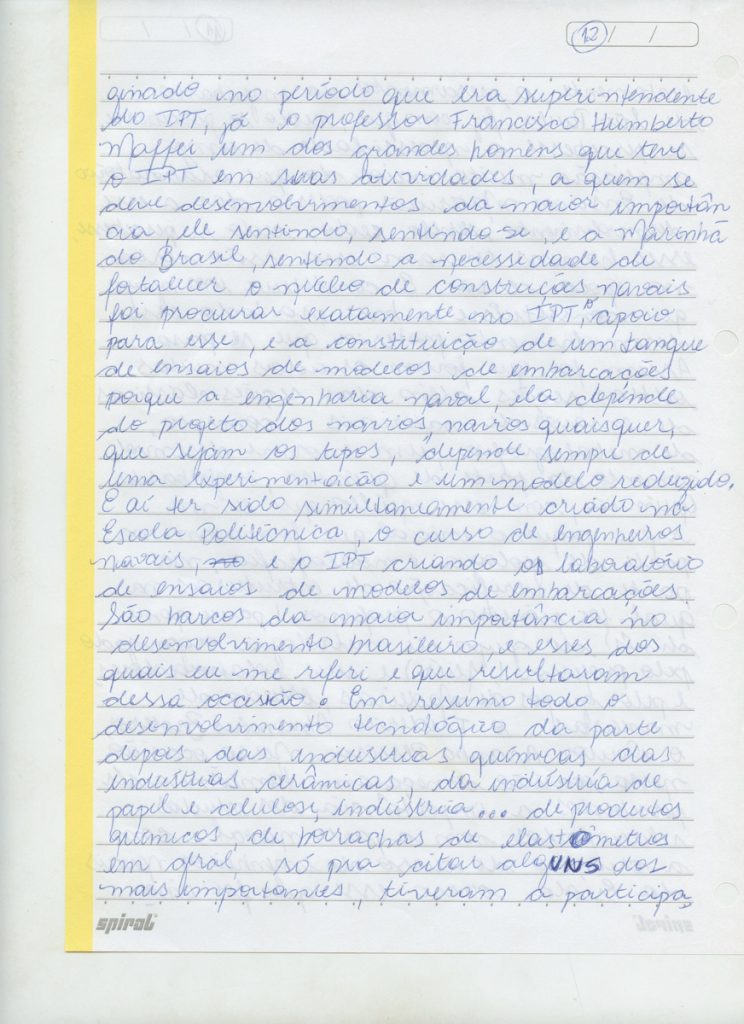 12 / /
ginado no período que era superintendente
do IPT, já o professor Francisco Humberto
Maffei um dos grandes homens que teve
o IPT em suas atividades, a quem se
deve desenvolvimentos da maior importân
cia, ele sentindo, sentindo-se, e a Marinha
do Brasil, sentindo a necessidade de
fortalecer o núcleo de construções navais
foi procurar exatamente no IPT, o apoio
para esse, e a constituição de um tanque
de ensaios de modelos de embarcações
porque a engenharia naval, ela depende
do projeto dos navios, navios quaisquer,
que sejam os tipos, depende sempre de
uma experimentação e um modelo reduzido.
E aí ter sido simultaneamente criado na
Escola Politécnica, o curso de engenheiros
navais, e o IPT criando os laboratório
de ensaios de modelos de embarcações.
São barcos da maia importância no
desenvolvimento brasileiro, e esses dos
quais eu me referi e que resultaram
dessa ocasião. Em resumo todo o
desenvolvimento tecnológico da parte
depois das industrias químicas das
industrias cerâmicas, da indústria de
papel e celulose, indústria... de produtos
químicos, de borrachas de elastômetros
em geral, só pra citar alguns dos
mais importantes, tiveram a participa
spiral